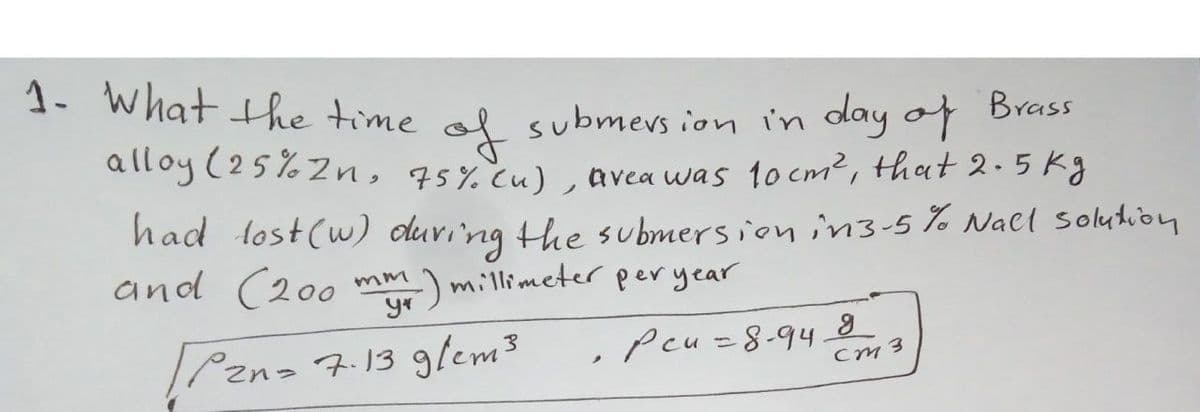 1- What the time of submersion in day of Brass
alloy (25% Zn, 75% Cu), area was 10 cm², that 2.5 kg
had lost (w) during the submersion in 3-5 % Nacl solution
and (200 mm/yr) millimeter per year
ρzn= 7.13 g/cm³ , ρcu = 8-94 g/cm³